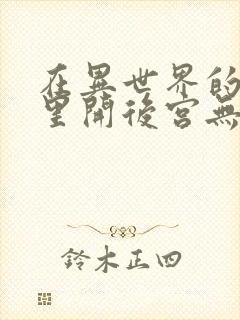 在異世界的
里開後宮無
鈴木正四